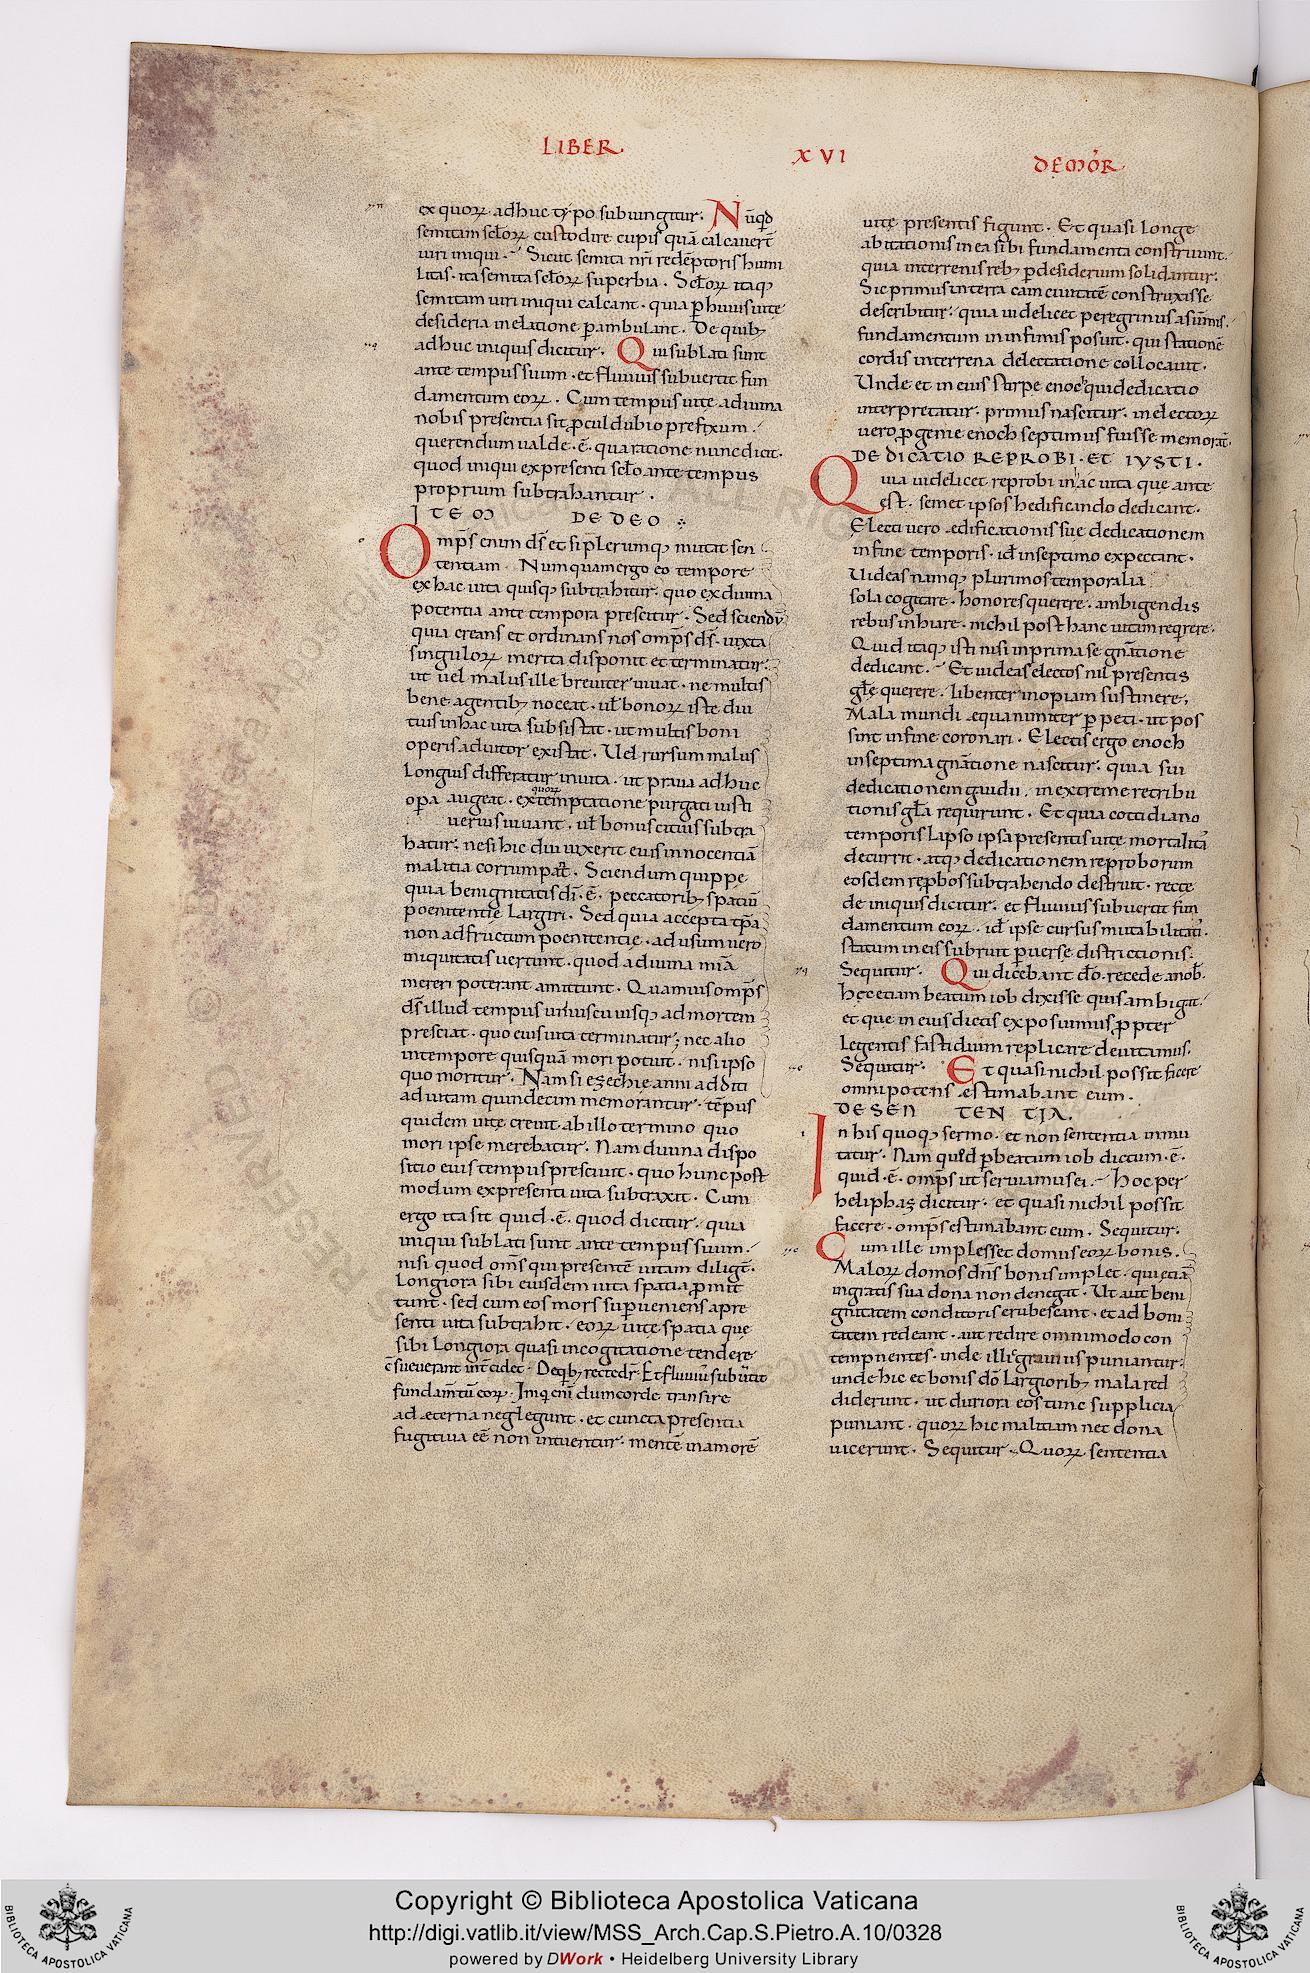 LIBER XVI DEMOR̄
ex quoꝝ adhuc typo subiungitur. Nūqd
semitam sc̄loꝝ custodire cupis quā calcauer̄t
uiri iniqui. Sicut semita nr̄i redēptoris humi
litas. ita semita sc̄loꝝ superbia. Sc̄loꝝ itaq;
semitam uiri iniqui calcant. quia ꝑ huius uitę
desideria in elatione ꝑambulant. De quib;
adhuc iniquis dicitur. Qui sublati sunt
ante tempus suum. et fluuius subuertit fun
damentum eoꝝ. Cum tempus uitę a diuina
nobis presentia sit ꝓculdubio prefixum.
querendum ualde .ē. qua ratione nunc dicit.
quod iniqui ex presenti sc̄lo ante tempus
proprium subtrahantur.
ITEM DE DEO
Omp̄s enim ds̄ etsi plerumq; mutat sen
tentiam Numquam ergo eo tempore
ex hac uita quisq; subtrahitur. quo ex diuina
potentia ante tempora prescitur. Sed sciendū
quia creans et ordinans nos omp̄s ds̄. iuxta
singuloꝝ merita disponit et terminatur.
ut uel malus ille breuiter uiuat. ne multis
bene agentib; noceat. ul̄ bonoꝝ iste diu
tius in hac uita subsistat. ut multis boni
operis adiutor existat. Uel rursum malus
longius differatur in uita. ut praua adhuc
opera augeat. ex quoꝝ temptatione purgati iusti
uerius uiuant. ul̄ bonus citius subtra
hatur. ne si hic diu uixerit eius innocentiā
malitia corrumpat. Sciendum quippe
quia benignitatis dī .ē. peccatorib; spatiū
poenitentię largiri. Sed quia accepta tp̄a
non ad fructum poenitentię. ad usum uero
iniquitatis uertunt. quod a diuina mīa
mereri poterant amittunt. Quamuis omp̄s
ds̄ illud tempus uniuscuiusq; ad mortem
presciat. quo eius uita terminatur; nec alio
in tempore quisquā mori potuit. nisi ipso
quo moritur. Nam si ezechię anni additi
ad uitam quindecim memorantur. tēpus
quidem uitę creuit. ab illo termino quo
mori ipse merebatur. Nam diuina dispo
sitio eius tempus presciuit. quo hunc post
modum ex presenti uita subtraxit. Cum
ergo ita sit quid .ē. quod dicitur. quia
iniqui sublati sunt ante tempus suum.
nisi quod om̄s qui presentē uitam diligt̄.
longiora sibi eiusdem uitę spatia ꝓmit
tunt. sed cum eos mors superueniens a pre
senti uita subtrahit. eoꝝ uitę spatia que
sibi longiora quasi in cogitatione tendere
fundam̄tū eoꝝ. dum corde transire
ad ęterna neglegunt. et cuncta presentia
fugitiua eē non intuentur. mentē in amorē
uitę presentis figunt. Et quasi longę
abitationis in ea sibi fundamenta construunt.
quia in terrenis reb; ꝑ desiderium solidantur.
Sic primus in terra cain ciuitatē construxisse
describitur. quia uidelicet peregrinus
fundamentum in infimis posuit. qui stationē
cordis in terrena delectatione collocauit.
Unde et in eius stirpe enoch qui dedicatio
interpretatur. primus nascitur. in electoꝝ
uero ꝓgenie enoch septimus fuisse memorat̄.
DEDICATIO REPROBI. ET IVSTI.
Quia uidelicet reprobi in hac uita que ante
est. semetipsos hedificando dedicant.
Electi uero ædificationis suę dedicationem
in fine temporis. id̄ in septimo expectant.
Uideas namq; plurimos temporalia
sola cogitare. honores querere. ambigendis
rebus inhiare. nichil post hanc uitam reqrere.
Quid itaq; isti nisi in prima se gn̄atione
dedicant. Et uideas electos nil presentis
glę querere. libenter inopiam sustinere,
Mala mundi æquanimiter ꝑpeti. ut pos
sint in fine coronari. Electis ergo enoch
in septima gn̄atione nascitur. quia sui
dedicationem gaudii. in extreme retribu
tionis gl̄a requirunt. Et quia cottidiano
temporis lapso ipsa presentis uitę mortalitā
decurrit. atq; dedicationem reproborum
eosdem rep̄bos subtrahendo destruit. recte
de iniquis dicitur. et fluuius subuertit fun
damentum eoꝝ. id̄ ipse cursus mutabilitatī.
statum in eis subruit ꝑuersę districtionis.
Sequitur. Qui dicebant dō. recede a nob̄.
hęc etiam beatum iob dixisse quis ambigit.
et quę in eius dictis exposuimus, ꝓpter
legentis fastidium replicare deuitamus.
Sequitur. Et quasi nichil possit facere
omnipotens æstimabant eum.
DE SEN TEN TIA.
In his quoq; sermo. et non sententia inmu
tatur. Nam quod ꝑ beatum iob dictum .ē.
quid .ē. omp̄s ut seruiamus ei. hoc per
heliphaz dicitur. et quasi nichil possit
facere. omp̄s estimabant eum. Sequitur.
Cum ille implesset domus eoꝝ bonis.
Maloꝝ domos dn̄s bonis implet. qui etiā
ingratis sua dona non denegat. Ut aut beni
gnitatem conditoris erubescant. et ad boni
tatem redeant. aut redire omnimodo con
tempnentes. inde illic grauius puniantur.
unde hic et bonis dō largiorib; mala red
diderunt. ut duriora eos tunc supplicia
puniant. quoꝝ hic malitiam nec dona
uicerunt. Sequitur. Quoꝝ sententia
Copyright © Biblioteca Apostolica Vaticana
http://digi.vatlib.it/view/MSS_Arch.Cap.S.Pietro.A.10/0328
powered by DWork • Heidelberg University Library
BIBLIOTECA APOSTOLICA VATICANA
BIBLIOTECA APOSTOLICA VATICANA